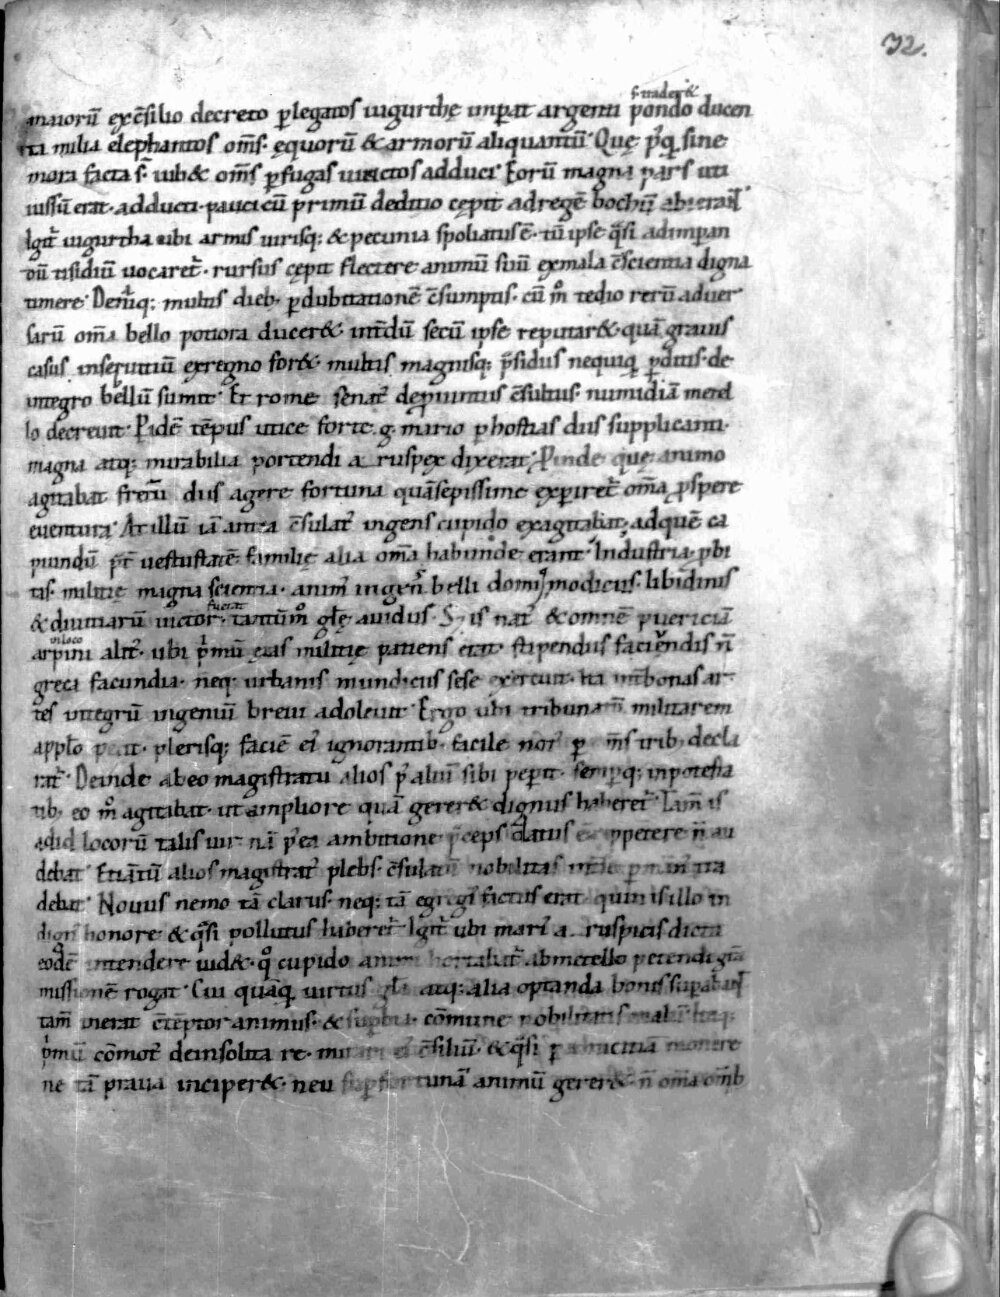 32.
s. trader&
maiorū exc̄silio decreto ꝑlegatos iugurthę imꝑat argenti pondo ducen
ta milia elephantos om̄s· equorū & armorū aliquantū· Quę p̄q̣ sine
mora facta s̄· iub& om̄s ꝑfugas uinctos adduci· Eorū magna pars uti
iussū erat· adducti· pauci cū primū deditio cępit adregē bochū abierant
Igit̄ iugurtha ubi armis uirisq; & pecunia spoliatus ē· cū ipse q̄si adimꝑan
dū tisidiū uocaret̄· rursus cępit flectere animū suū exmala c̄scientia digna
timere· Deniq; multis dieb· ꝑdubitationē c̄sumptis· cū m̊ tedio rerū aduer
sarū om̄a bello potiora ducer&· int̄dū secū ipse reputar& quā grauis
casus inseruitiū exregno for&· multis magnisq; p̄sidiis nequiq̄ ꝑditis· de
integro bellū sumit· Et rome senat̄ deprouintiis c̄sultus· numidiā metel
lo decreuit· Ꝑidē tēpus utice forte g mario ꝑ hostias diis supplicanti·
magna atq; mirabilia portendi a ruspex dixerat· Ꝓinde quę animo
agitabat fret̄ diis agere fortuna quāsepissime exꝑiret̄ om̄a ꝓspere
euentura· At illū iā antea c̄sulat̄ ingens cupido exagitabat· adquē ca
piundū p̄t̄ uestustatē familię alia om̄a habunde erant· Industria· ꝓbi
tas· militię magna scientia· anim̄ ingens belli domi modicus· libidinis
fuerat
& diuitiarū uictor· tantūm̊ glę auidus· S; is nat̄ & omnē pueritiā
in loco
arpini alit̄· ubi p̄mū ętas militię patiens erat· stipendiis faciendis n̄
greca facundia· neq· urbanis mundiciis sese exercuit· Ita int̄bonas ar
tes integrū ingeniū breui adoleuit· Ergo ubi tribunatū militarem
applo petit· plerisq; faciē ei᷒ ignorantib· facile not̄ ꝑ om̄s trib; decla
rat̄· Deinde abeo magistratu alios p̄ aliū sibi peꝑit· semꝑq; inpotesta
tib; eo m̊ agitabat· ut ampliore quā gerer& dignus haberet̄· Tam̄ is
adid locorū talis uir nā p̄ea ambitione p̄ceps datus ē appetere n̄ au
debat· Etiātū alios magistrat̄ plebs· c̄sulatū nobilitas
debat· Nouus nemo tā clarus· neq; tā egregi᷒ factis erat quin is illo in
dign᷒ honore & q̄si pollutus haberet̄· Igit̄ ubi mari᷒ a ruspicis dicta
eodē intendere uid& q̊ cupido animi hortabat̄ abmetello petendi grā
missionē rogat· Cui quāq̄ uirtus gła atq; alia optanda bonis suꝑabant
tam̄ inerat c̄tēptor animus· & suꝑbia· cōmune nobilitatis malū· Itaq;
p̄mū cōmot̄ deinsolita re· mirari ei᷒ c̄siliū· & q̄si ꝑ amicitiā monere
ne tā praua inciper&· neu suꝑ fortunā animū gerer& n̄ om̄a om̄ib